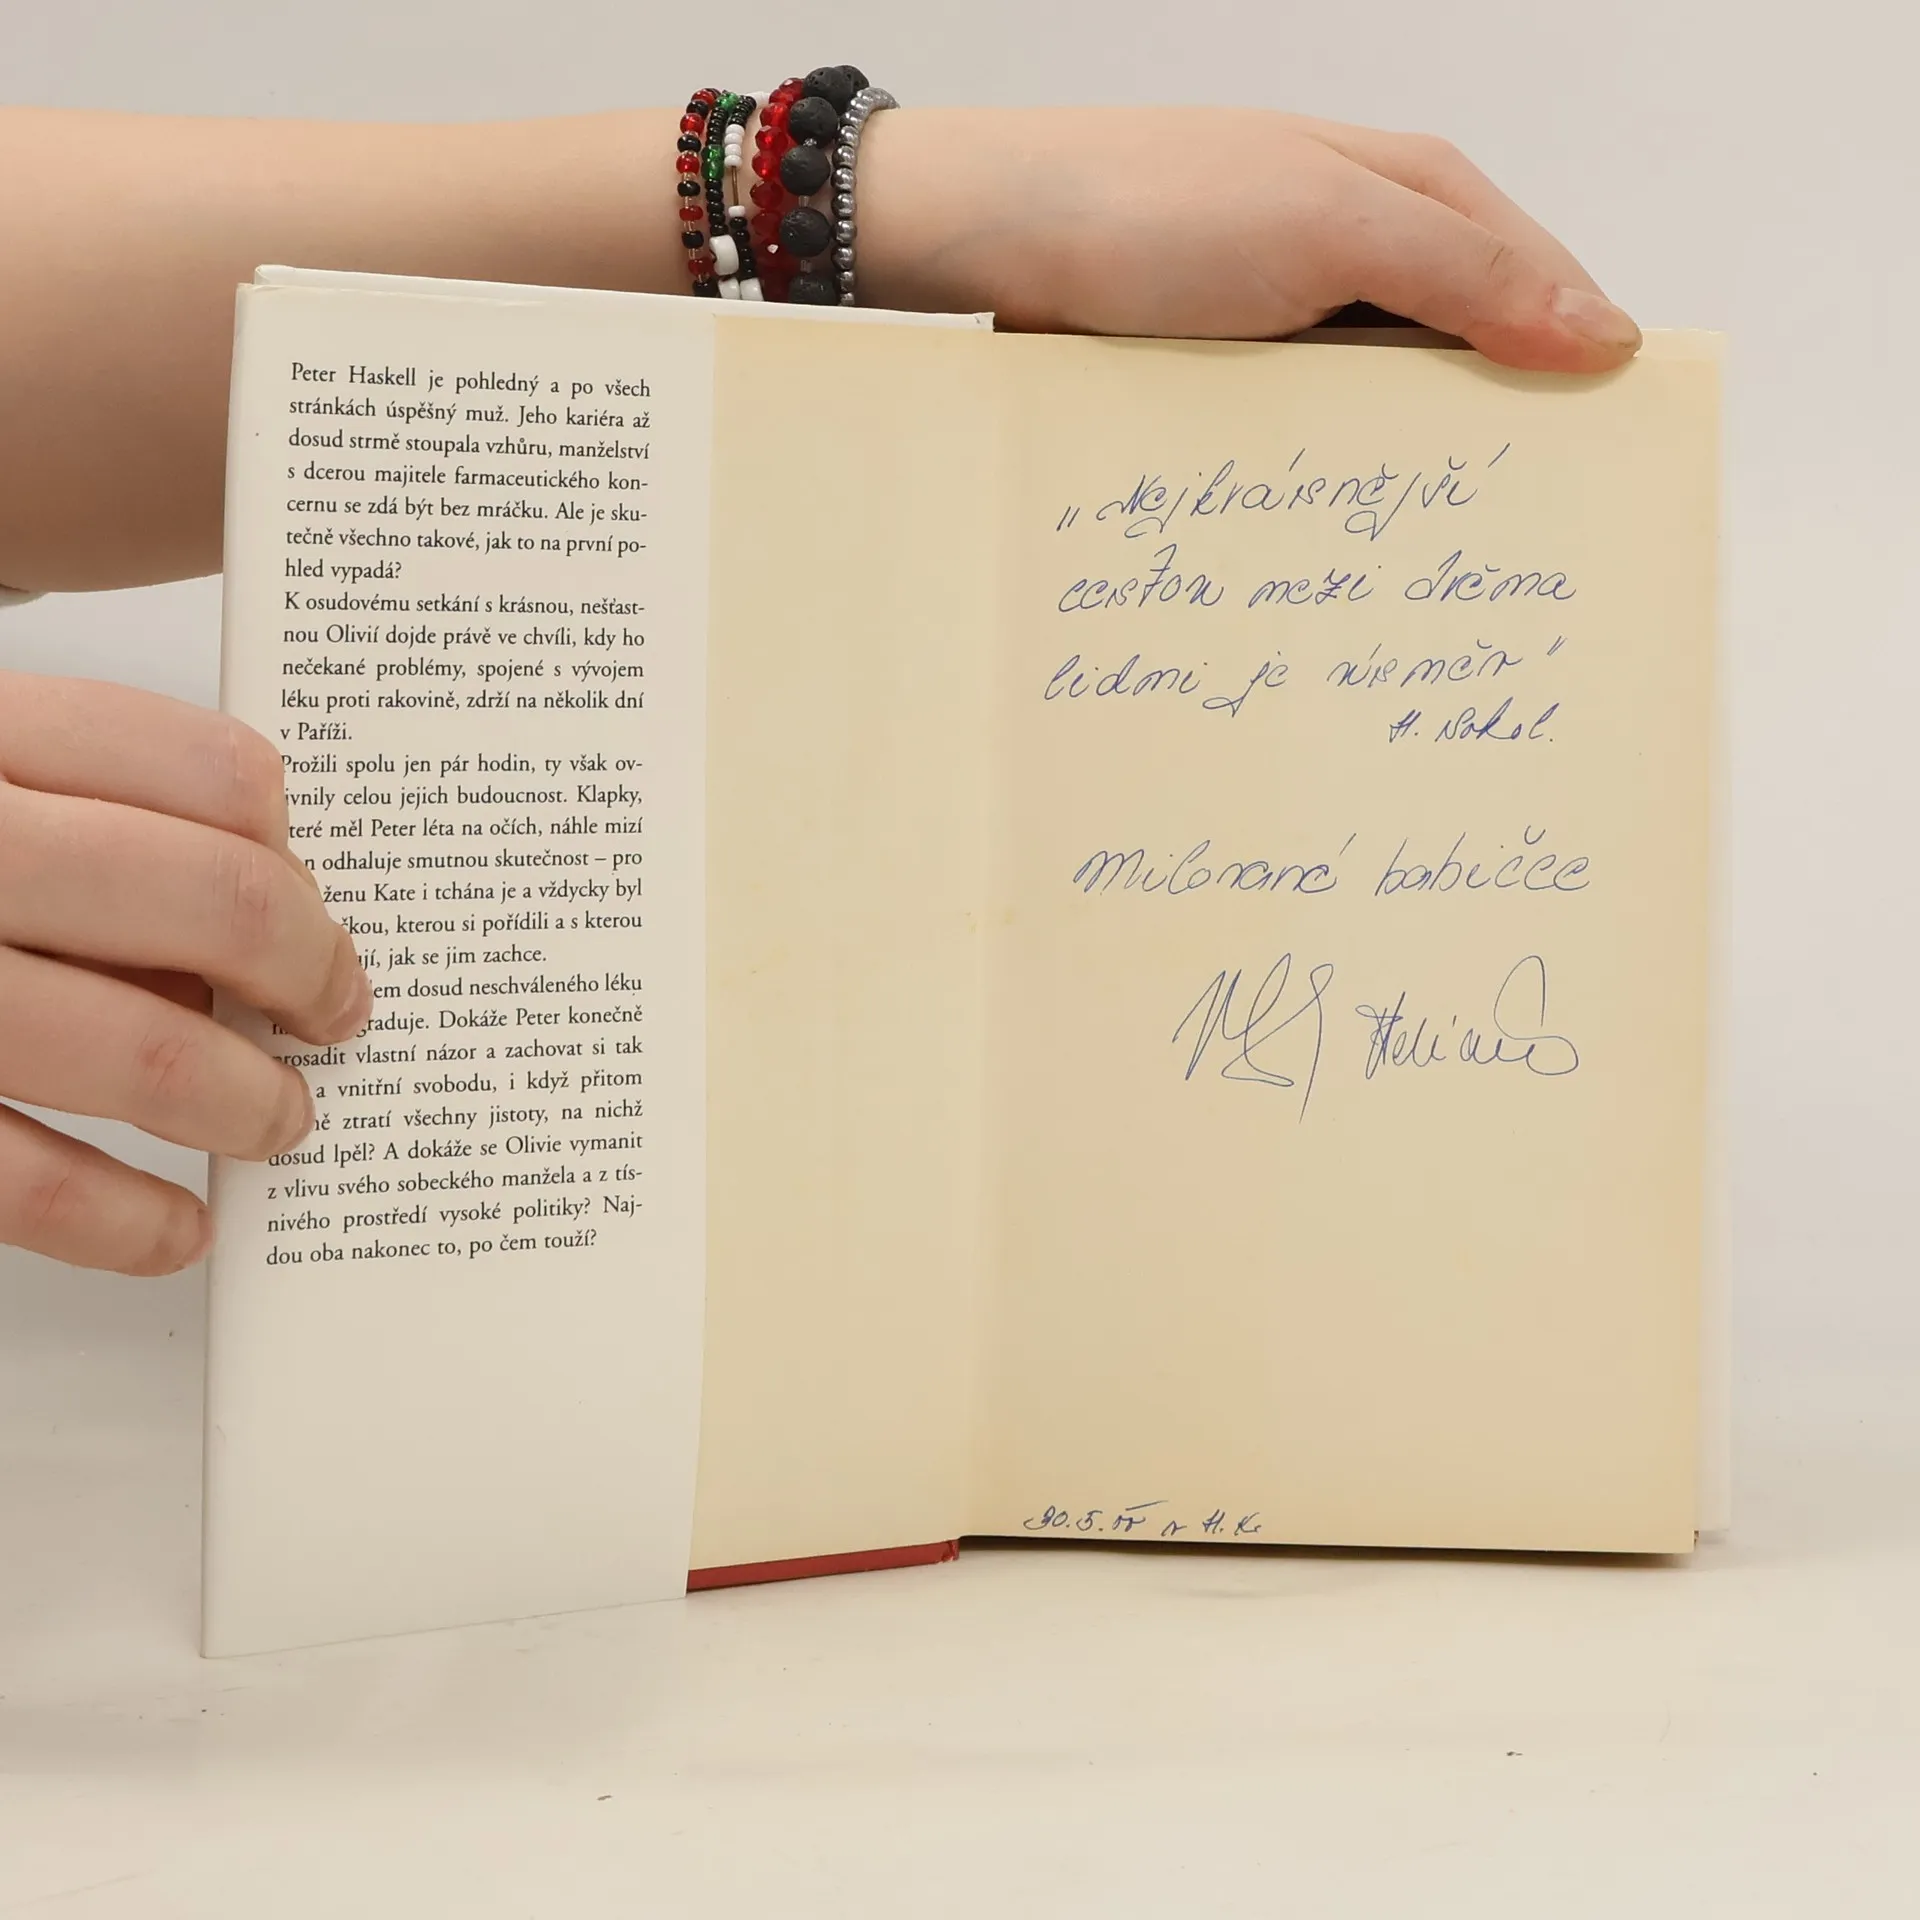 Peter Haskell je pohledný a po všech
stránkách úspěšný muž. Jeho kariéra až
dosud strmě stoupala vzhůru, manželství
s dcerou majitele farmaceutického kon-
cernu se zdá být bez mráčku. Ale je sku-
tečně všechno takové, jak to na první po-
hled vypadá?
K osudovému setkání s krásnou, nešťast-
nou Olivií dojde právě ve chvíli, kdy ho
nečekané problémy, spojené s vývojem
léku proti rakovině, zdrží na několik dní
v Paříži.
Prožili spolu jen pár hodin, ty však ov-
ivnily celou jejich budoucnost. Klapky,
teré měl Peter léta na očích, náhle mizí
n odhaluje smutnou skutečnost – pro
ženu Kate i tchána je a vždycky byl
čkou, kterou si pořídili a s kterou
jí, jak se jim zachce.
em dosud neschváleného léku
graduje. Dokáže Peter konečně
prosadit vlastní názor a zachovat si tak
a vnitřní svobodu, i když přitom
ně ztratí všechny jistoty, na nichž
dosud lpěl? A dokáže se Olivie vymanit
z vlivu svého sobeckého manžela a z tís-
nivého prostředí vysoké politiky? Naj-
dou oba nakonec to, po čem touží?
„Nejkrásnější
cestou mezi dvěma
lidmi je úsměv"
H. Sokol.
Milované babičce
30.5. v H. K.